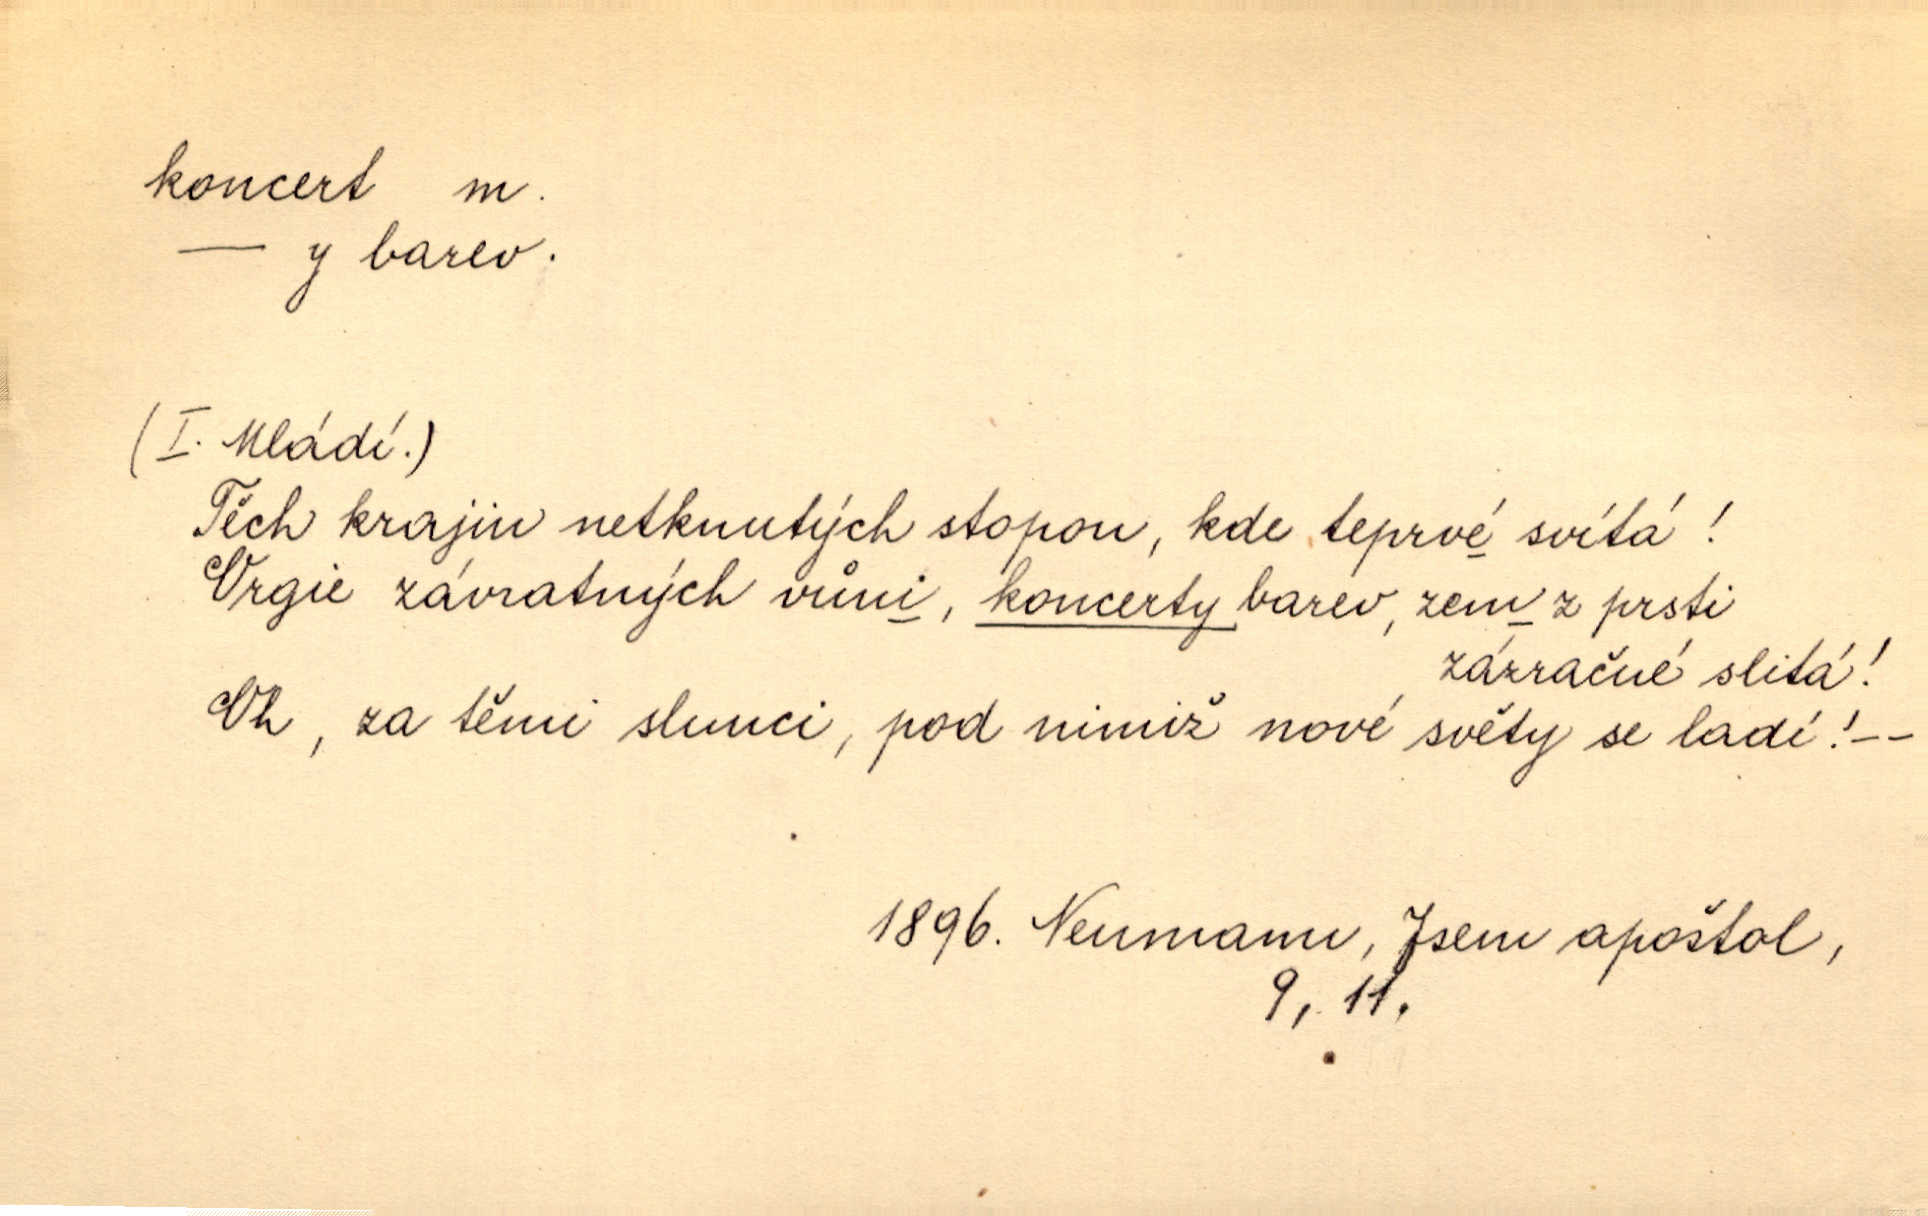 koncert m.
— y barev.
(I. Mládí.)
Těch krajin netknutých stopou, kde teprvé svítá!
Orgie závratných vůni, koncerty barev, zem z prsti
zázračné slitá!
Oh, za těmi slunci, pod nimiž nové světy se ladí! --
1896. Neumann, Jsem apoštol,
9, 11.